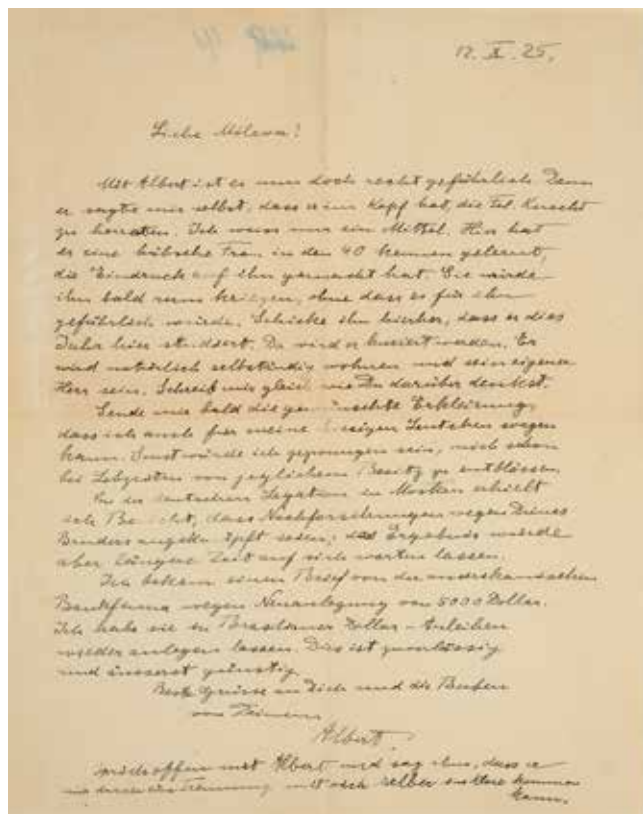 12. X. 25.
Liebe Mileva!
Mit Albert ist es nun doch recht gefährlich. Denn
er sagte mir selbst, dass er im Kopf hat, die Frl. Knecht
zu heiraten. Ich weiss nur ein Mittel. Hier hat
er eine hübsche Frau in den 40 kennen gelernt,
die Eindruck auf ihn gemacht hat. Sie würde
ihn bald rum kriegen, ohne dass es für ihn
gefährlich würde. Schicke ihn hierher, dass er dies
Jahr hier studiert. Da wird er kuriert werden. Er
wird natürlich selbständig wohnen und sein eigener
Herr sein. Schreib mir gleich, wie Du darüber denkst.
Sende mir bald die gewünschte Erklärung,
dass ich auch für meine hiesigen Leutchen sorgen
kann. Sonst würde ich gezwungen sein, mich schon
bei Lebzeiten von jeglichem Besitz zu entblössen.
Von der deutschen Legation in Moskau erhielt
ich Bericht, dass Nachforschungen wegen Deines
Bruders angeknüpft seien; das Ergebnis würde
aber längere Zeit auf sich warten lassen.
Ich bekam einen Brief von der amerikanischen
Bankfirma wegen Neuanlegung von 5000 Dollar.
Ich habe sie in Dollar-Anleihen
wieder anlegen lassen. Dies ist zuverlässig
und äusserst günstig.
Beste Grüsse an Dich und die Buben
von Deinem
Albert.
offen mit Albert und sag ihm, dass er
nur durch eine Trennung mit sich selber ins Klare kommen
kann.